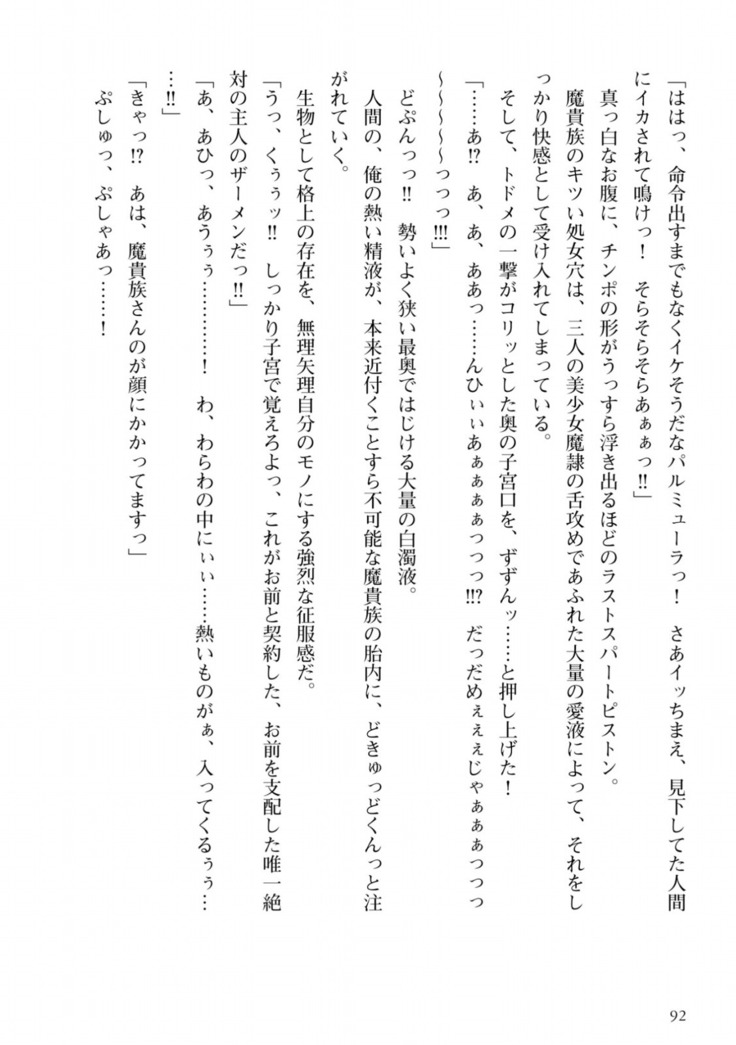 「ははっ、命令出すまでもなくイケそうだなパルミューラっ！　さあイッちまえ、見下してた人間
にイカされて鳴けっ！　そらそらそらあぁぁっ!!」
　真っ白なお腹に、チンポの形がうっすら浮き出るほどのラストスパートピストン。
　魔貴族のキツい処女穴は、三人の美少女魔隷の舌攻めであふれた大量の愛液によって、それをし
っかり快感として受け入れてしまっている。
　そして、トドメの一撃がコリッとした奥の子宮口を、ずずんッ……と押し上げた！
「……あ!?　あ、あ、ああっ……んひぃぃあぁぁぁぁっっっ!!?　だっだめぇぇぇじゃぁぁぁっっっ
～～～～～～っっっ!!!」
　どぷんっっ!!　勢いよく狭い最奥ではじける大量の白濁液。
　人間の、俺の熱い精液が、本来近付くことすら不可能な魔貴族の胎内に、どきゅっどくんっと注
がれていく。
　生物として格上の存在を、無理矢理自分のモノにする強烈な征服感だ。
「うっ、くぅぅッ!!　しっかり子宮で覚えろよっ、これがお前と契約した、お前を支配した唯一絶
対の主人のザーメンだっ!!」
「あ、あひっ、あうぅぅ…………！　わ、わらわの中にぃぃ……熱いものがぁ、入ってくるぅぅ…
…!!」
「きゃっ!?　あは、魔貴族さんのが顔にかかってますっ」
　ぷしゅっ、ぷしゃあっ……！
92